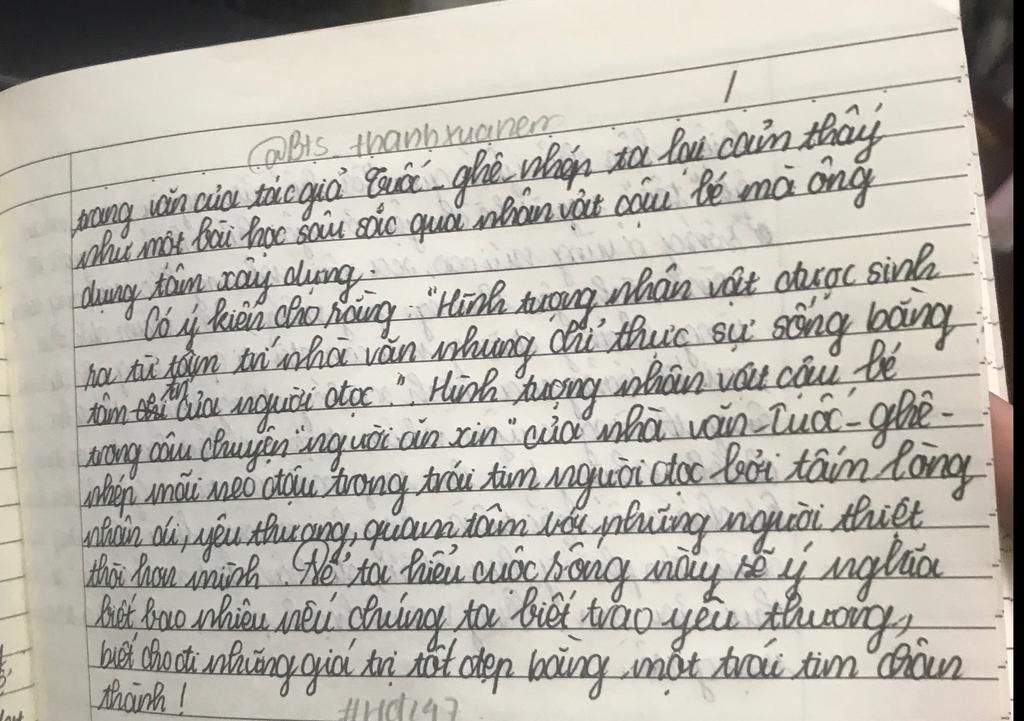 @Bts_thanhxuanem
trang văn của tác giả Tuốc-ghê-nhép ta lại cảm thấy
như một bài học sâu sắc qua nhân vật cậu bé mà ông
dụng tâm xây dựng.
Có ý kiến cho rằng: "Hình tượng nhân vật được sinh
ra từ tâm trí nhà văn nhưng chỉ thực sự sống bằng
tâm trí của người đọc". Hình tượng nhân vật cậu bé
trong câu chuyện "người ăn xin" của nhà văn Tuốc-ghê-
nhép mãi neo đậu trong trái tim người đọc bởi tấm lòng
nhân ái, yêu thương, quan tâm với những người thiệt
thòi hơn mình. Để ta hiểu cuộc sống này sẽ ý nghĩa
biết bao nhiêu nếu chúng ta biết trao yêu thương,
biết cho đi những giá trị tốt đẹp bằng một trái tim chân
thành!